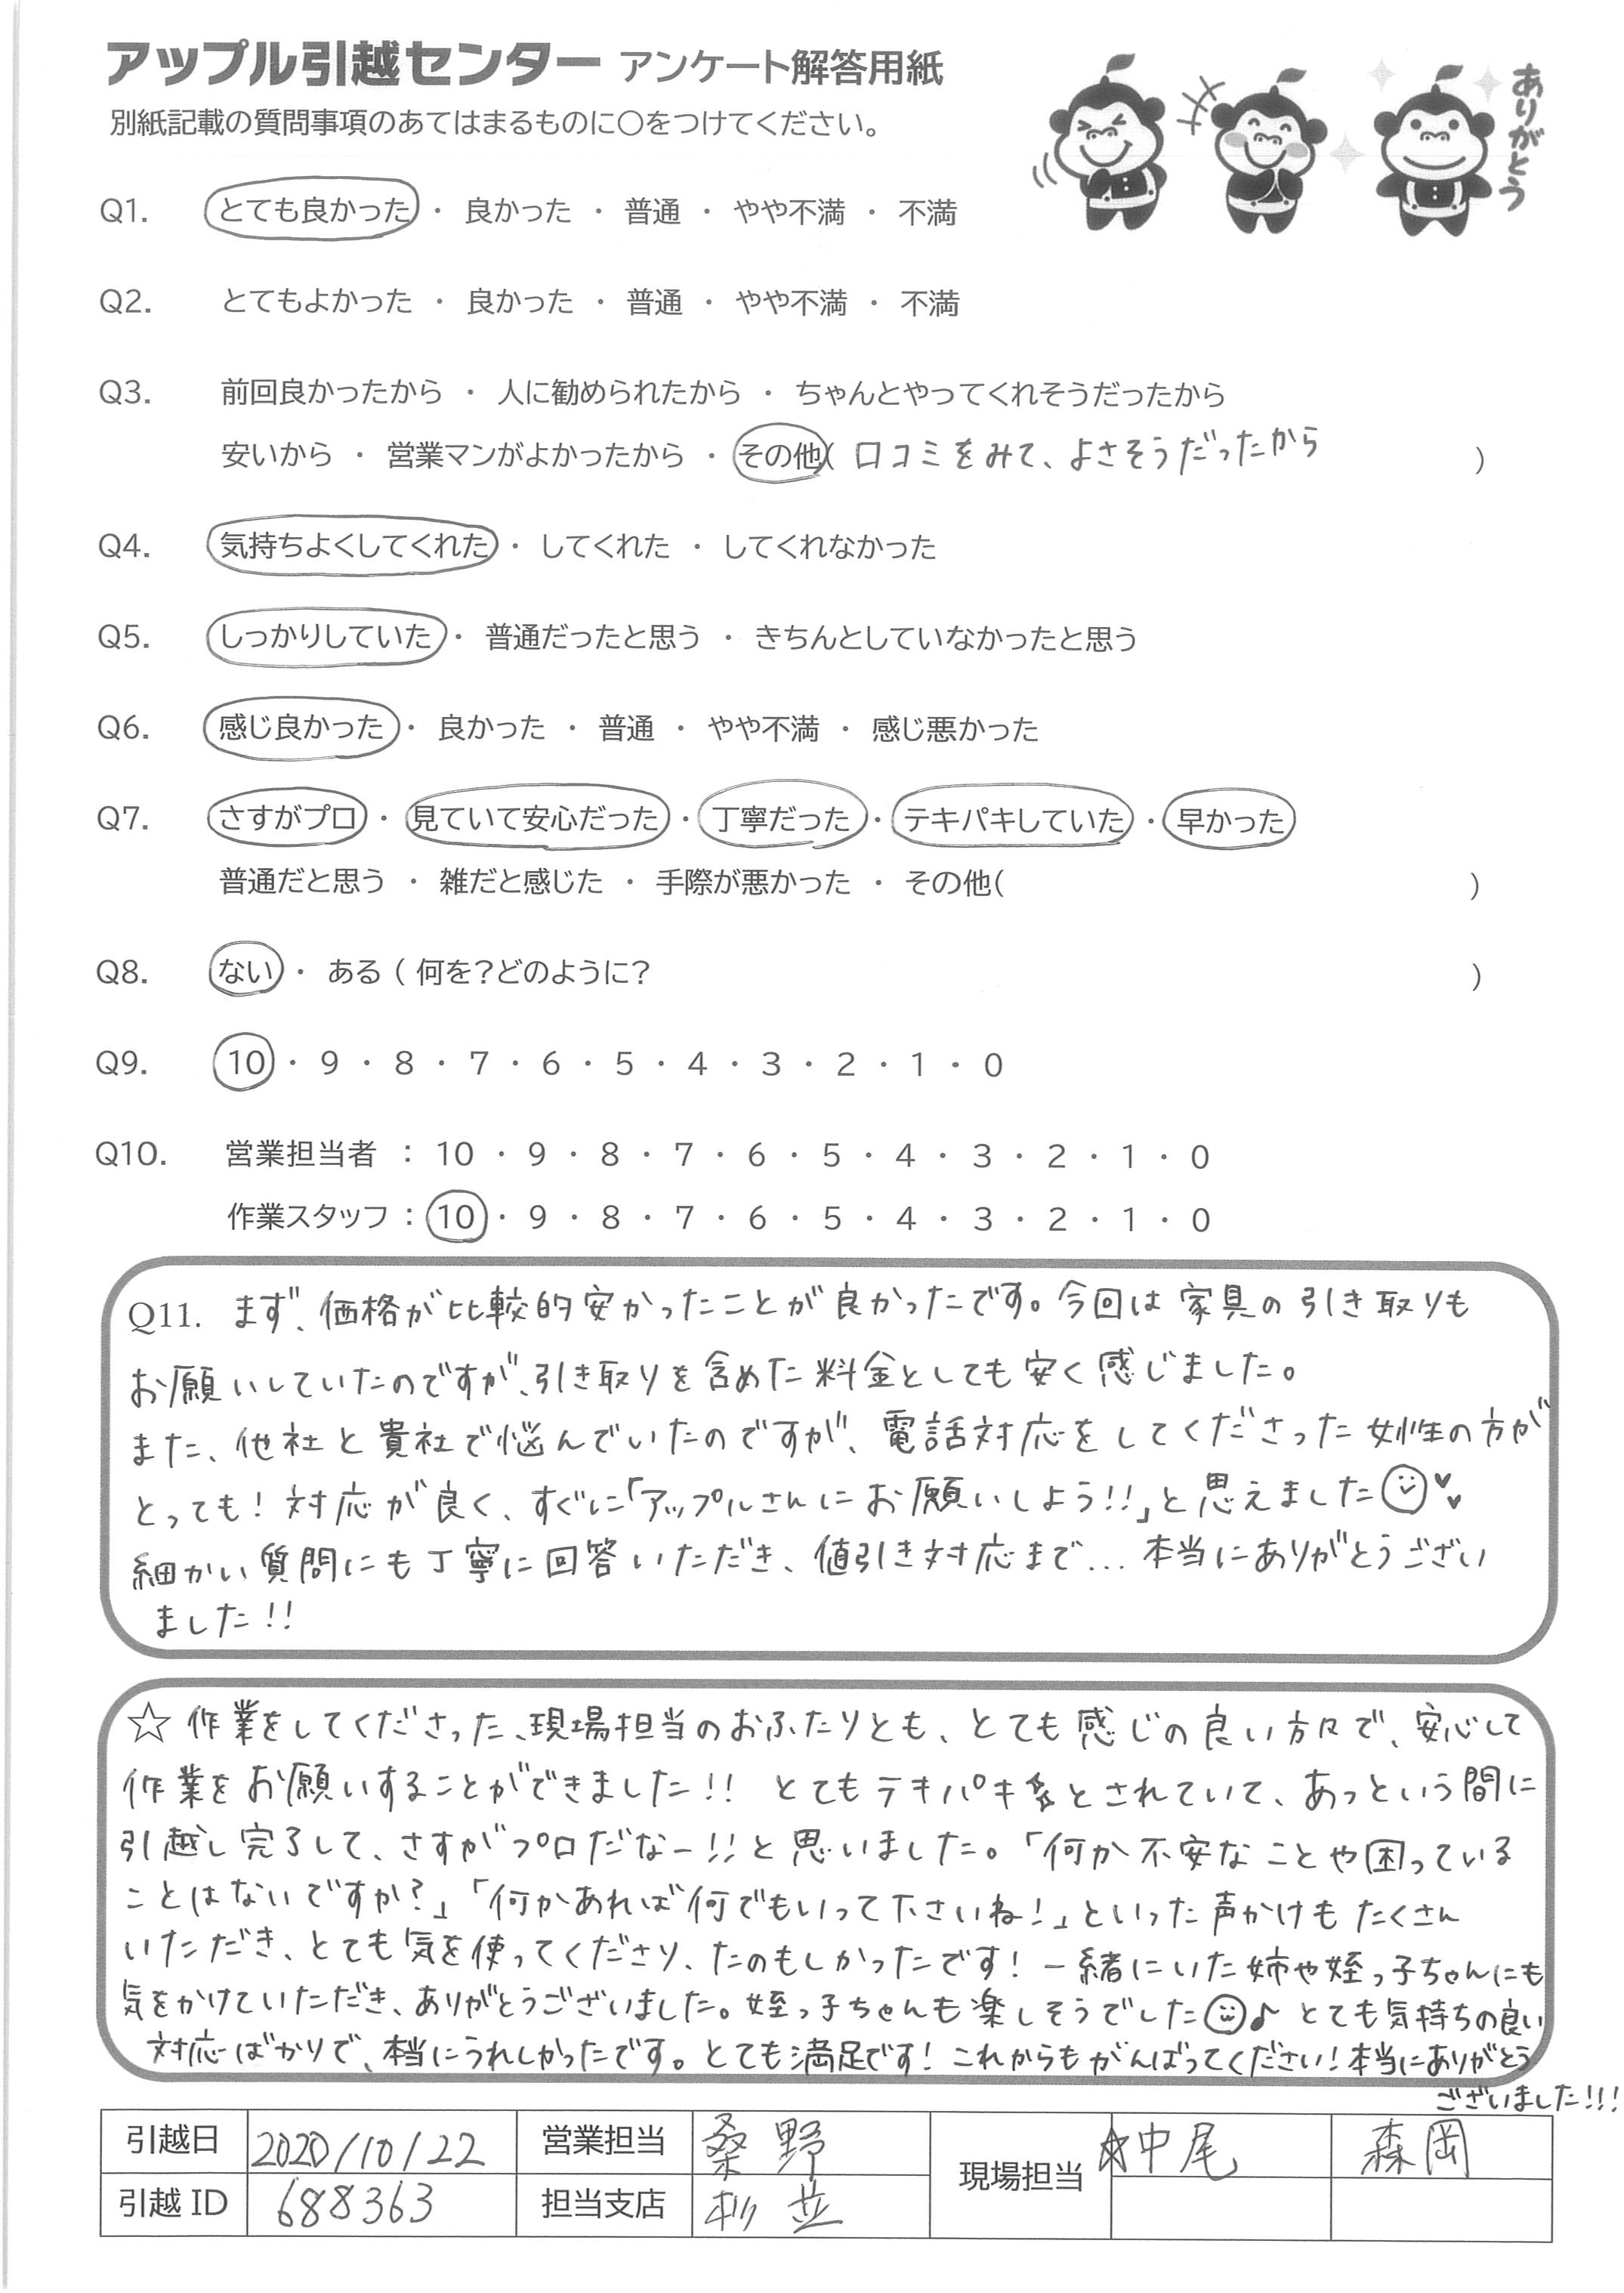 アップル引越センター アンケート解答用紙
別紙記載の質問事項のあてはまるものに○をつけてください。
ありがとう
Q1. とても良かった ・ 良かった ・ 普通 ・ やや不満 ・ 不満
Q2. とてもよかった ・ 良かった ・ 普通 ・ やや不満 ・ 不満
Q3. 前回良かったから ・ 人に勧められたから ・ ちゃんとやってくれそうだったから
安いから ・ 営業マンがよかったから ・ その他( 口コミをみて、よさそうだったから )
Q4. 気持ちよくしてくれた ・ してくれた ・ してくれなかった
Q5. しっかりしていた ・ 普通だったと思う ・ きちんとしていなかったと思う
Q6. 感じ良かった ・ 良かった ・ 普通 ・ やや不満 ・ 感じ悪かった
Q7. さすがプロ ・ 見ていて安心だった ・ 丁寧だった ・ テキパキしていた ・ 早かった
普通だと思う ・ 雑だと感じた ・ 手際が悪かった ・ その他( )
Q8. ない ・ ある ( 何を?どのように? )
Q9. 10 ・ 9 ・ 8 ・ 7 ・ 6 ・ 5 ・ 4 ・ 3 ・ 2 ・ 1 ・ 0
Q10. 営業担当者 : 10 ・ 9 ・ 8 ・ 7 ・ 6 ・ 5 ・ 4 ・ 3 ・ 2 ・ 1 ・ 0
作業スタッフ : 10 ・ 9 ・ 8 ・ 7 ・ 6 ・ 5 ・ 4 ・ 3 ・ 2 ・ 1 ・ 0
Q11. まず、価格が比較的安かったことが良かったです。今回は家具の引き取りも
お願いしていたのですが、引き取りを含めた料金としても安く感じました。
また、他社と貴社で悩んでいたのですが、電話対応をしてくださった女性の方が
とっても!対応が良く、すぐに「アップルさんにお願いしよう!!」と思えました
細かい質問にも丁寧に回答いただき、値引き対応まで... 本当にありがとうござい
ました!!
☆ 作業をしてくださった、現場担当のおふたりとも、とても感じの良い方々で、安心して
作業をお願いすることができました!! とてもテキパキとされていて、あっという間に
引越し完了して、さすがプロだなー!!と思いました。「何か不安なことや困っている
ことはないですか?」「何かあれば何でもいって下さいね!」といった声かけもたくさん
いただき、とても気を使ってくださり、たのもしかったです! 一緒にいた姉や姪っ子ちゃんにも
気をかけていただき、ありがとうございました。姪っ子ちゃんも楽しそうでした♪ とても気持ちの良い
対応ばかりで、本当にうれしかったです。とても満足です! これからもがんばってください!本当にありがとう
ございました!!!
引越日 2020/10/22 営業担当 桑野 現場担当 ☆中尾 森岡
引越ID 688363 担当支店 杉並